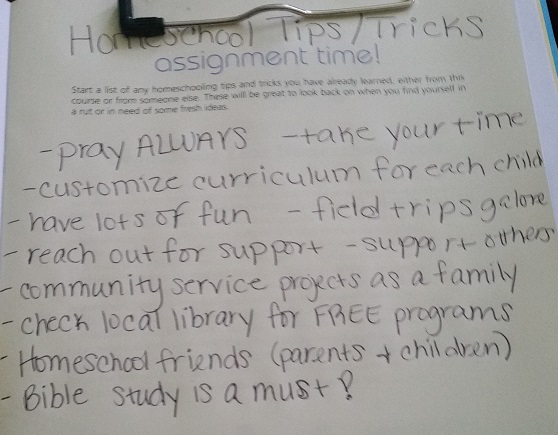 Homeschool Tips/Tricks
assignment time!
Start a list of any homeschooling tips and tricks you have already learned, either from this
course or from someone else. These will be great to look back on when you find yourself in
a rut or in need of some fresh ideas.
-pray ALWAYS -take your time
-customize curriculum for each child
- have lots of fun - field trips galore
- reach out for support - support others
- community service projects as a family
- check local library for FREE programs
- Homeschool friends (parents + children)
- Bible study is a must!